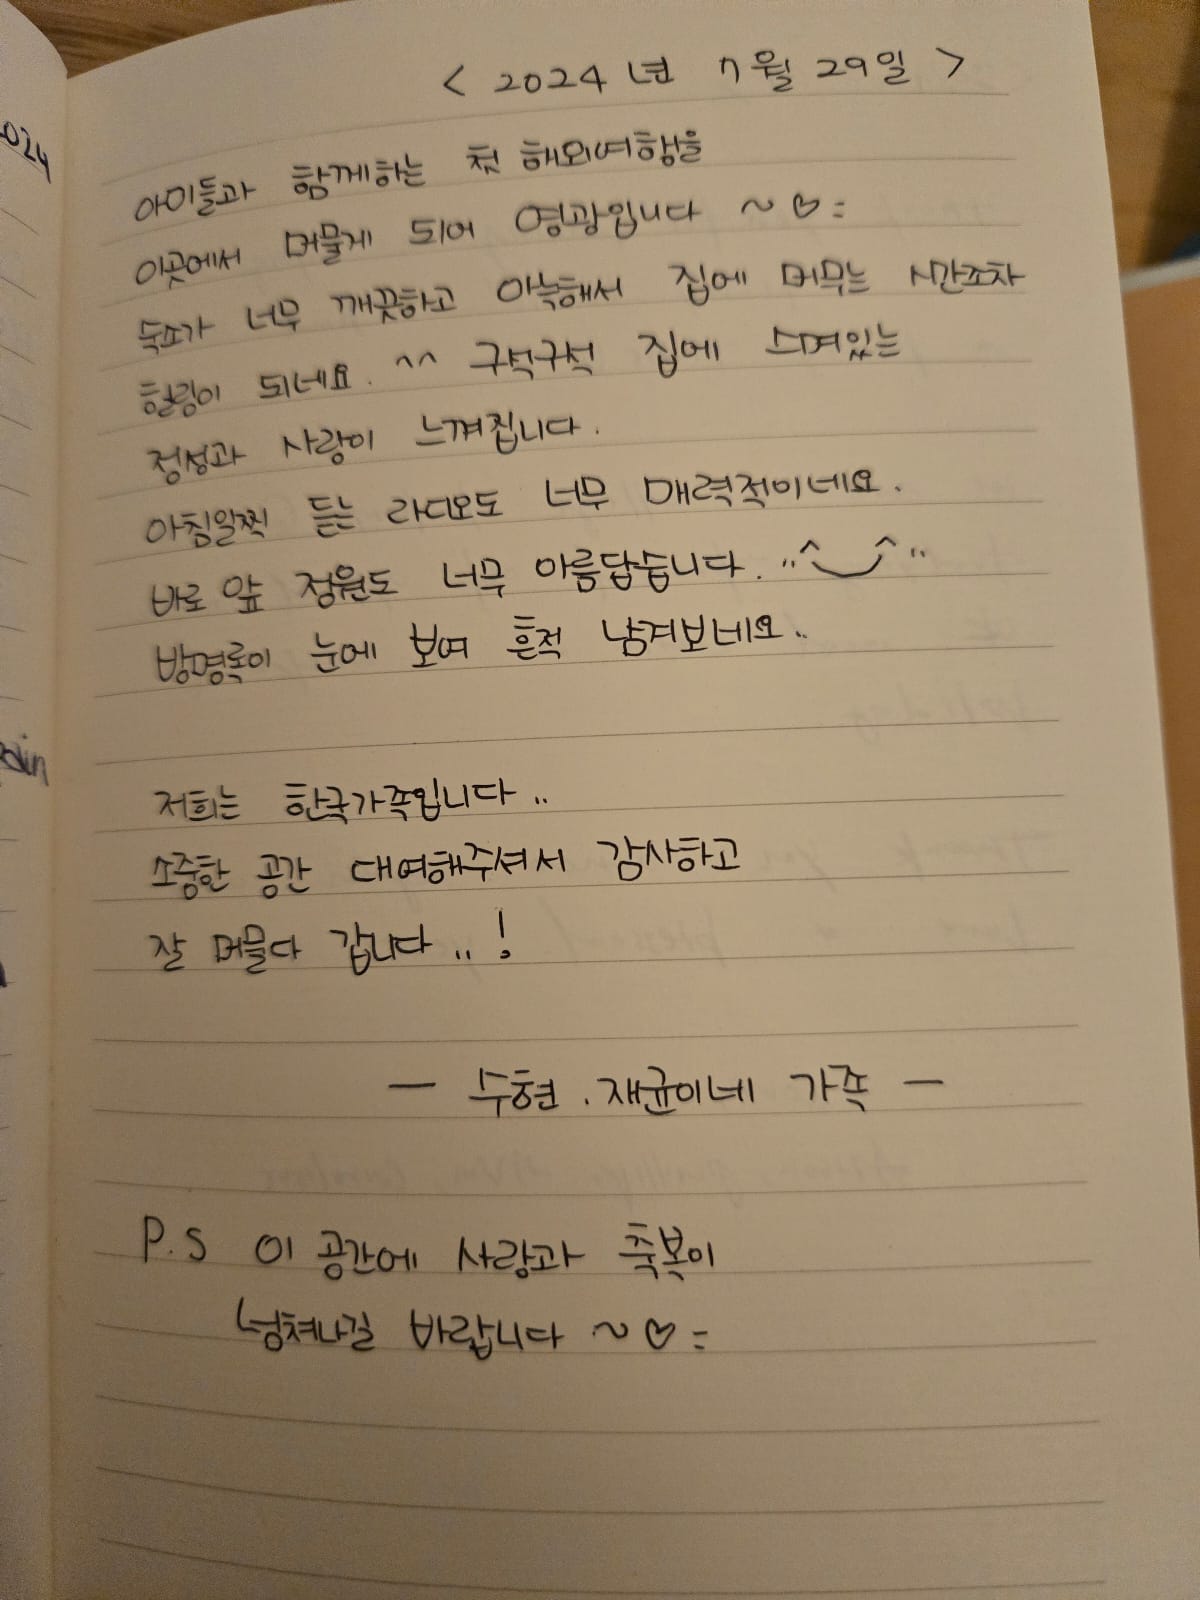 2024
< 2024년 7월 29일 >
아이들과 함께하는 첫 해외여행을
이곳에서 머물게 되어 영광입니다 ~♡=
숙소가 너무 깨끗하고 아늑해서 집에 머무는 시간조차
힐링이 되네요. ^^ 구석구석 집에 스며있는
정성과 사랑이 느껴집니다.
아침일찍 듣는 라디오도 너무 매력적이네요.
바로 앞 정원도 너무 아름답습니다. "^‿^"
방명록이 눈에 보여 흔적 남겨보네요..
저희는 한국가족입니다..
소중한 공간 대여해주셔서 감사하고
잘 머물다 갑니다..!
— 수현.재균이네 가족 —
P.S 이 공간에 사랑과 축복이
넘쳐나길 바랍니다 ~♡=